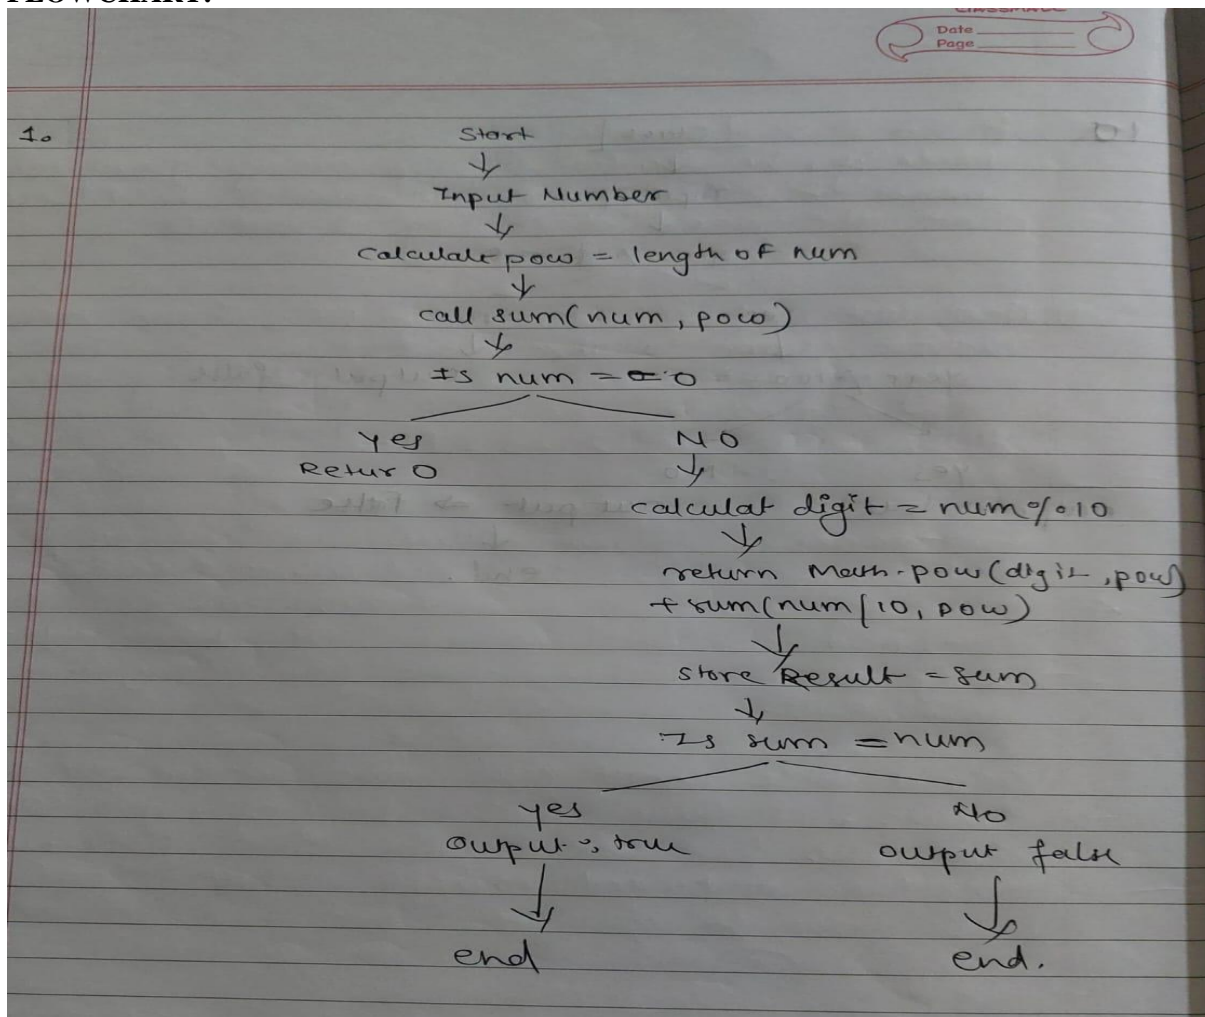 FLOWCHART:
Date
Page
1.
Start
Input Number
calculate pow = length of num
call sum(num, pow)
Is num == 0
Yes NO
Retur 0
calculat digit = num%10
return Math.pow(digit, pow)
+ sum(num/10, pow)
store Result = sum
Is sum = num
yes No
output: true output false
end end.